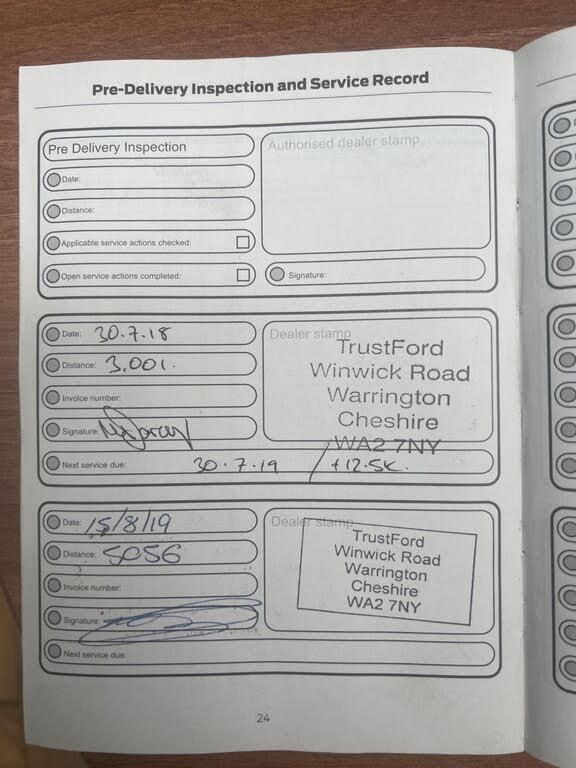 Pre-Delivery Inspection and Service Record
Pre Delivery Inspection
Authorised dealer stamp
Date:
Distance:
Applicable service actions checked:
Open service actions completed:
Signature:
Date: 30.7.18
Dealer stamp
TrustFord
Winwick Road
Warrington
Cheshire
WA2 7NY
Distance: 3,001.
Invoice number:
Signature:
Next service due: 30.7.19 / +12.5K.
Date: 15/8/19
Dealer stamp
TrustFord
Winwick Road
Warrington
Cheshire
WA2 7NY
Distance: 5056
Invoice number:
Signature:
Next service due:
24